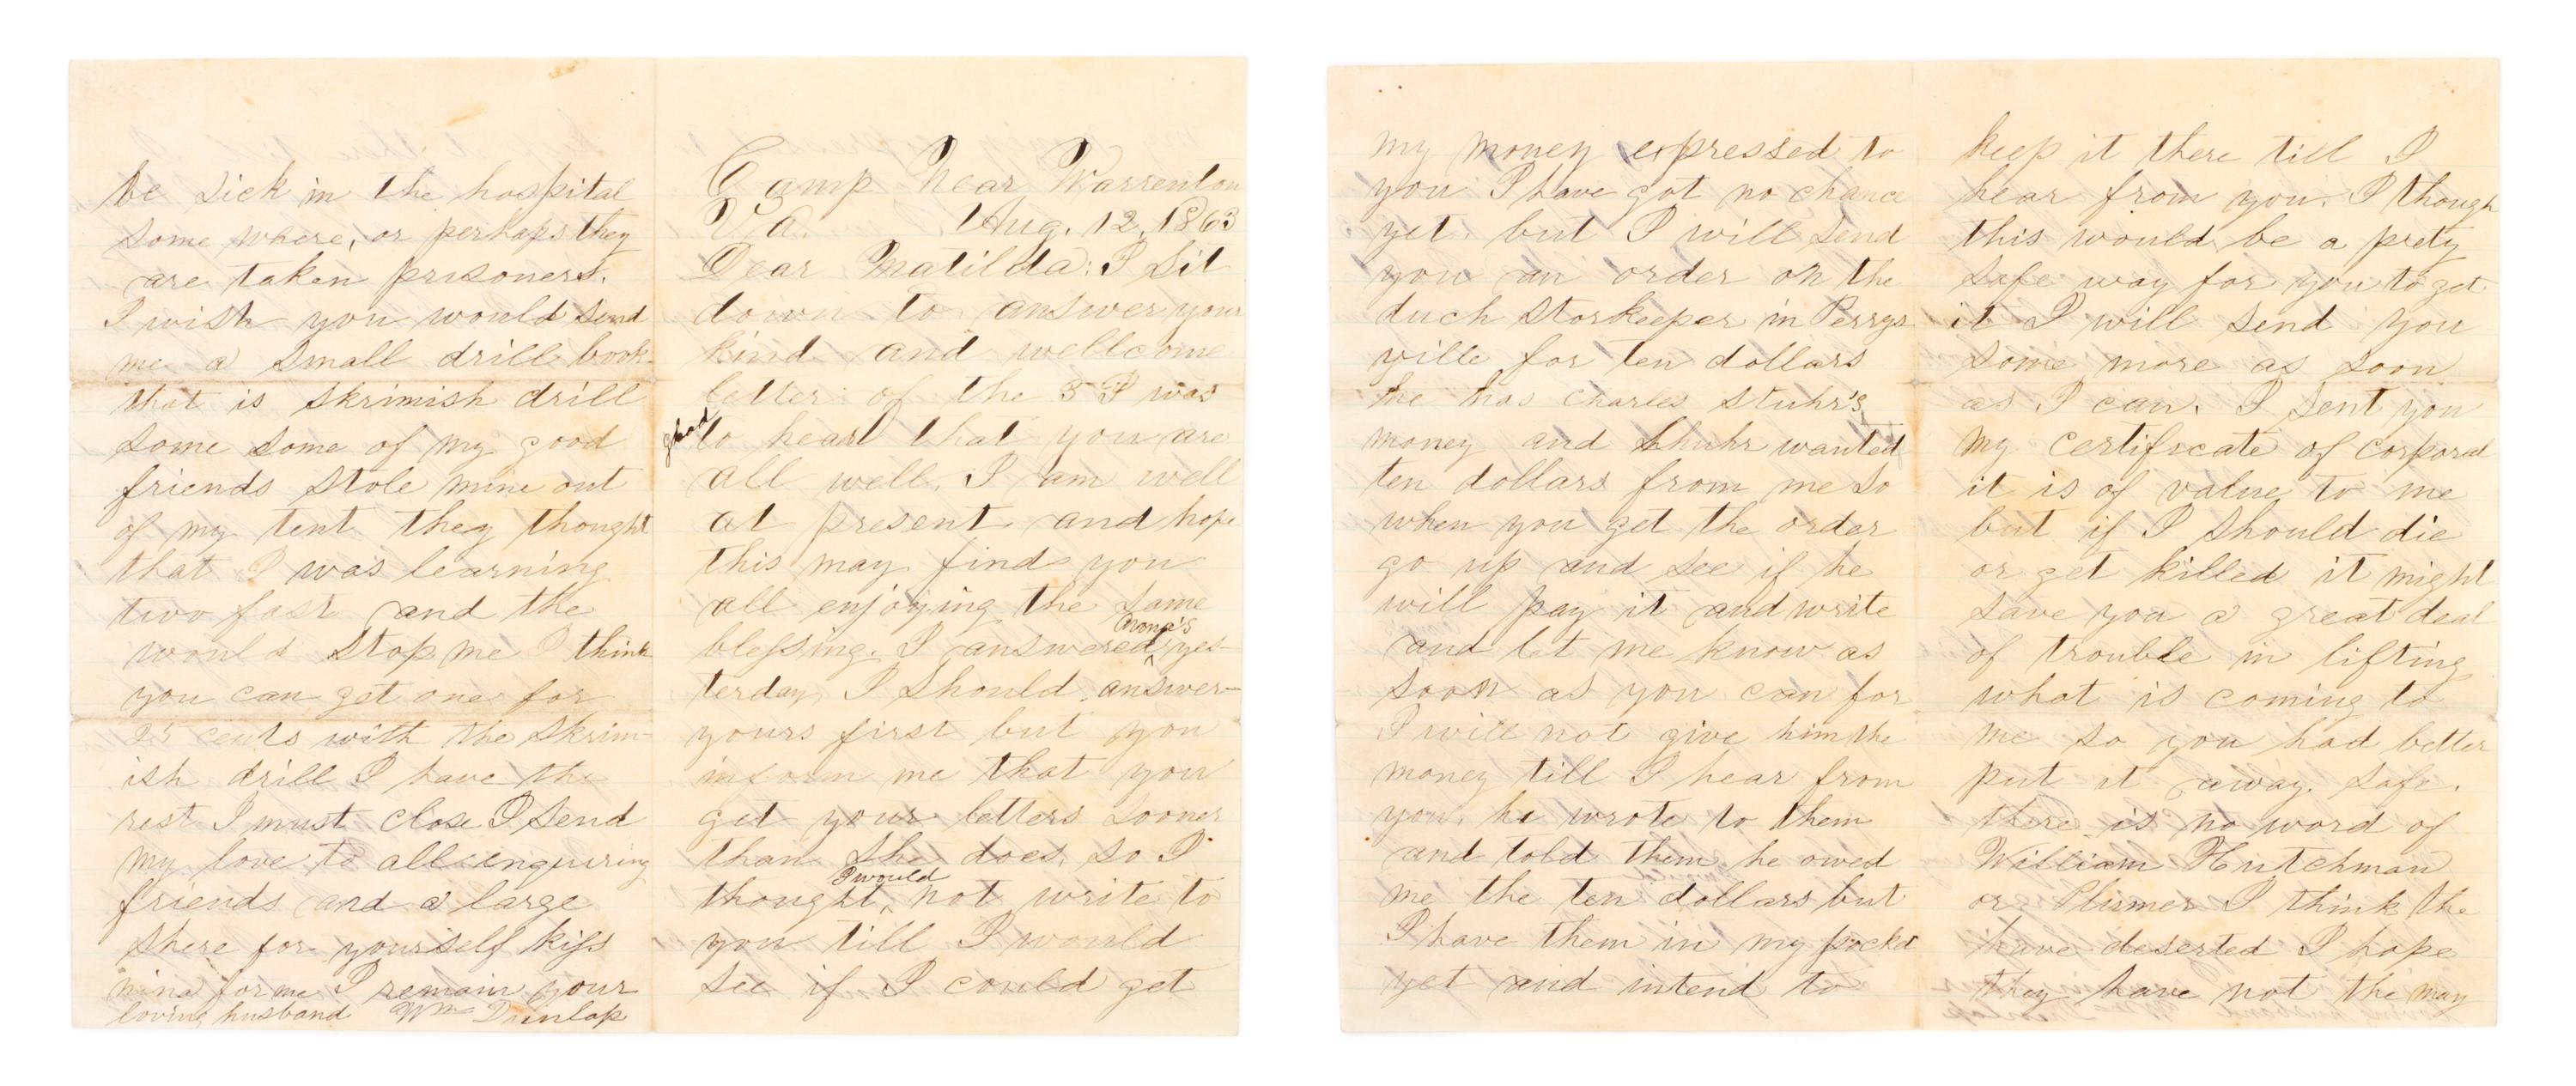 Camp Near Warrenton
Va. Aug. 12, 1863
Dear Matilda: I sit
down to answer your
kind and wellcome
letter of the 3 I was
glad to hear that you are
all well. I am well
at present and hope
this may find you
all enjoying the same
blessing. I answered yes-
terday, I should answer
yours first but you
inform me that you
get your letters sooner
than she does, so I
thought I would not write to
you till I would
see if I could get
my money expressed to
you I have got no chance
yet. but I will send
you an order on the
duch storkeeper in Perrys
ville for ten dollars
he has Charles Stuhr's
money and Shuhr wanted
ten dollars from me so
when you get the order
go up and see if he
will pay it and write
and let me know as
soon as you can for
I will not give him the
money till I hear from
you. he wrote to them
and told them he owed
me the ten dollars but
I have them in my pocket
yet and intend to
keep it there till I
hear from you. I though
this would be a prety
safe way for you to get
it I will send you
some more as soon
as I can. I sent you
my certificate of corporal
it is of value to me
but if I should die
or get killed it might
save you a great deal
of trouble in lifting
what is coming to
me so you had better
put it away. safe.
there is no word of
William Hutchman
or I think the
have deserted I hope
they have not the may
be sick in the hospital
some where, or perhaps they
are taken prisoners.
I wish you would send
me a small drill book
that is skrimish drill
some some of my good
friends stole mine out
of my tent they thought
that I was learning
two fast and the
would stop me I think
you can get one for
25 cents with the skrim-
ish drill I have the
rest I must close I send
my love to all enquiring
friends and a large
shere for yourself kiss
nina for me I remain your
loving husband Wm Dunlap